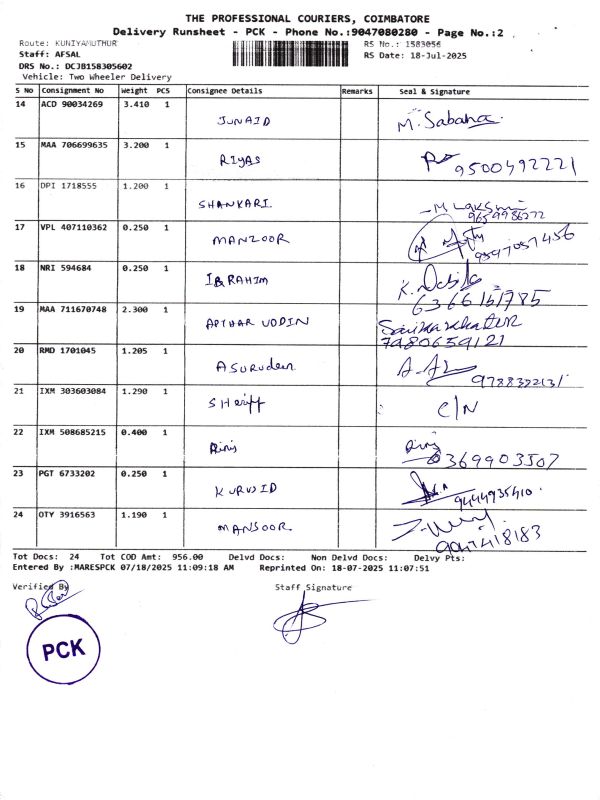 THE PROFESSIONAL COURIERS, COIMBATORE
Delivery Runsheet - PCK - Phone No.:9047080280 - Page No.:2
Route: KUNIYAMUTHUR RS No.: 1583056
Staff: AFSAL RS Date: 18-Jul-2025
DRS No.: DCJB158305602
Vehicle: Two Wheeler Delivery
S No Consignment No Weight PCS Consignee Details Remarks Seal & Signature
14 ACD 90034269 3.410 1 JUNAID M. Sabana
15 MAA 706699635 3.200 1 RIYAS 9500492221
16 DPI 1718555 1.200 1 SHANKARI
17 VPL 407110362 0.250 1 MANZOOR
18 NRI 594684 0.250 1 IBRAHIM K.
19 MAA 711670748 2.300 1 UDDIN
7480659121
20 RMD 1701045 1.205 1 Asurudeen
21 IXM 303603084 1.290 1 SHeriff C/N
22 IXM 508685215 0.400 1
23 PGT 6733202 0.250 1 9444935410
24 OTY 3916563 1.190 1 MANSOOR
9047418183
Tot Docs: 24 Tot COD Amt: 956.00 Delvd Docs: Non Delvd Docs: Delvy Pts:
Entered By :MARESPCK 07/18/2025 11:09:18 AM Reprinted On: 18-07-2025 11:07:51
Verified By Staff Signature
PCK